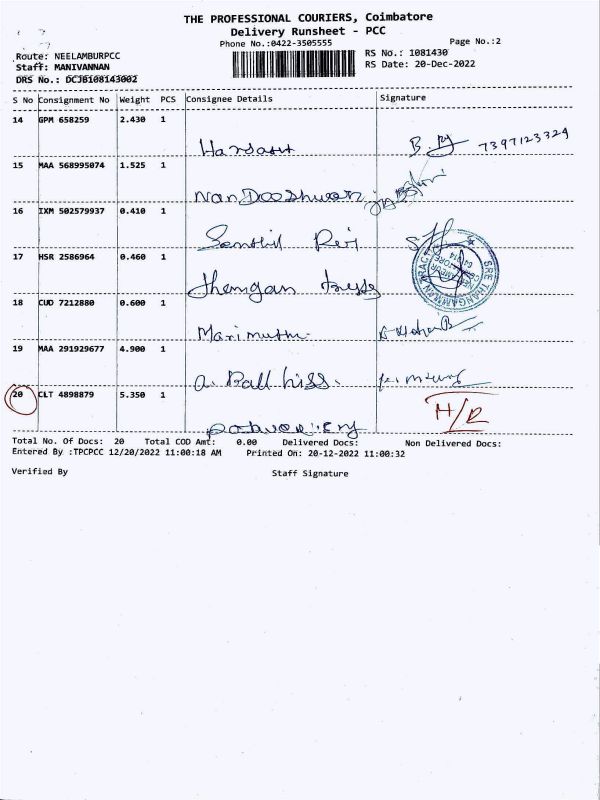 THE PROFESSIONAL COURIERS, Coimbatore
Delivery Runsheet - PCC
Phone No.:0422-3505555
Page No.:2
Route: NEELAMBURPCC
RS No.: 1081430
Staff: MANIVANNAN
RS Date: 20-Dec-2022
DRS No.: DCJB108143002
S No Consignment No Weight PCS Consignee Details Signature
14 GPM 658259 2.430 1
7397123329
15 MAA 568995074 1.525 1
16 IXM 502579937 0.410 1
17 HSR 2586964 0.460 1
18 CUD 7212880 0.600 1
Marimuthu
19 MAA 291929677 4.900 1
20 CLT 4898879 5.350 1
H/R
Total No. Of Docs: 20 Total COD Amt: 0.00 Delivered Docs: Non Delivered Docs:
Entered By :TPCPCC 12/20/2022 11:00:18 AM Printed On: 20-12-2022 11:00:32
Verified By Staff Signature